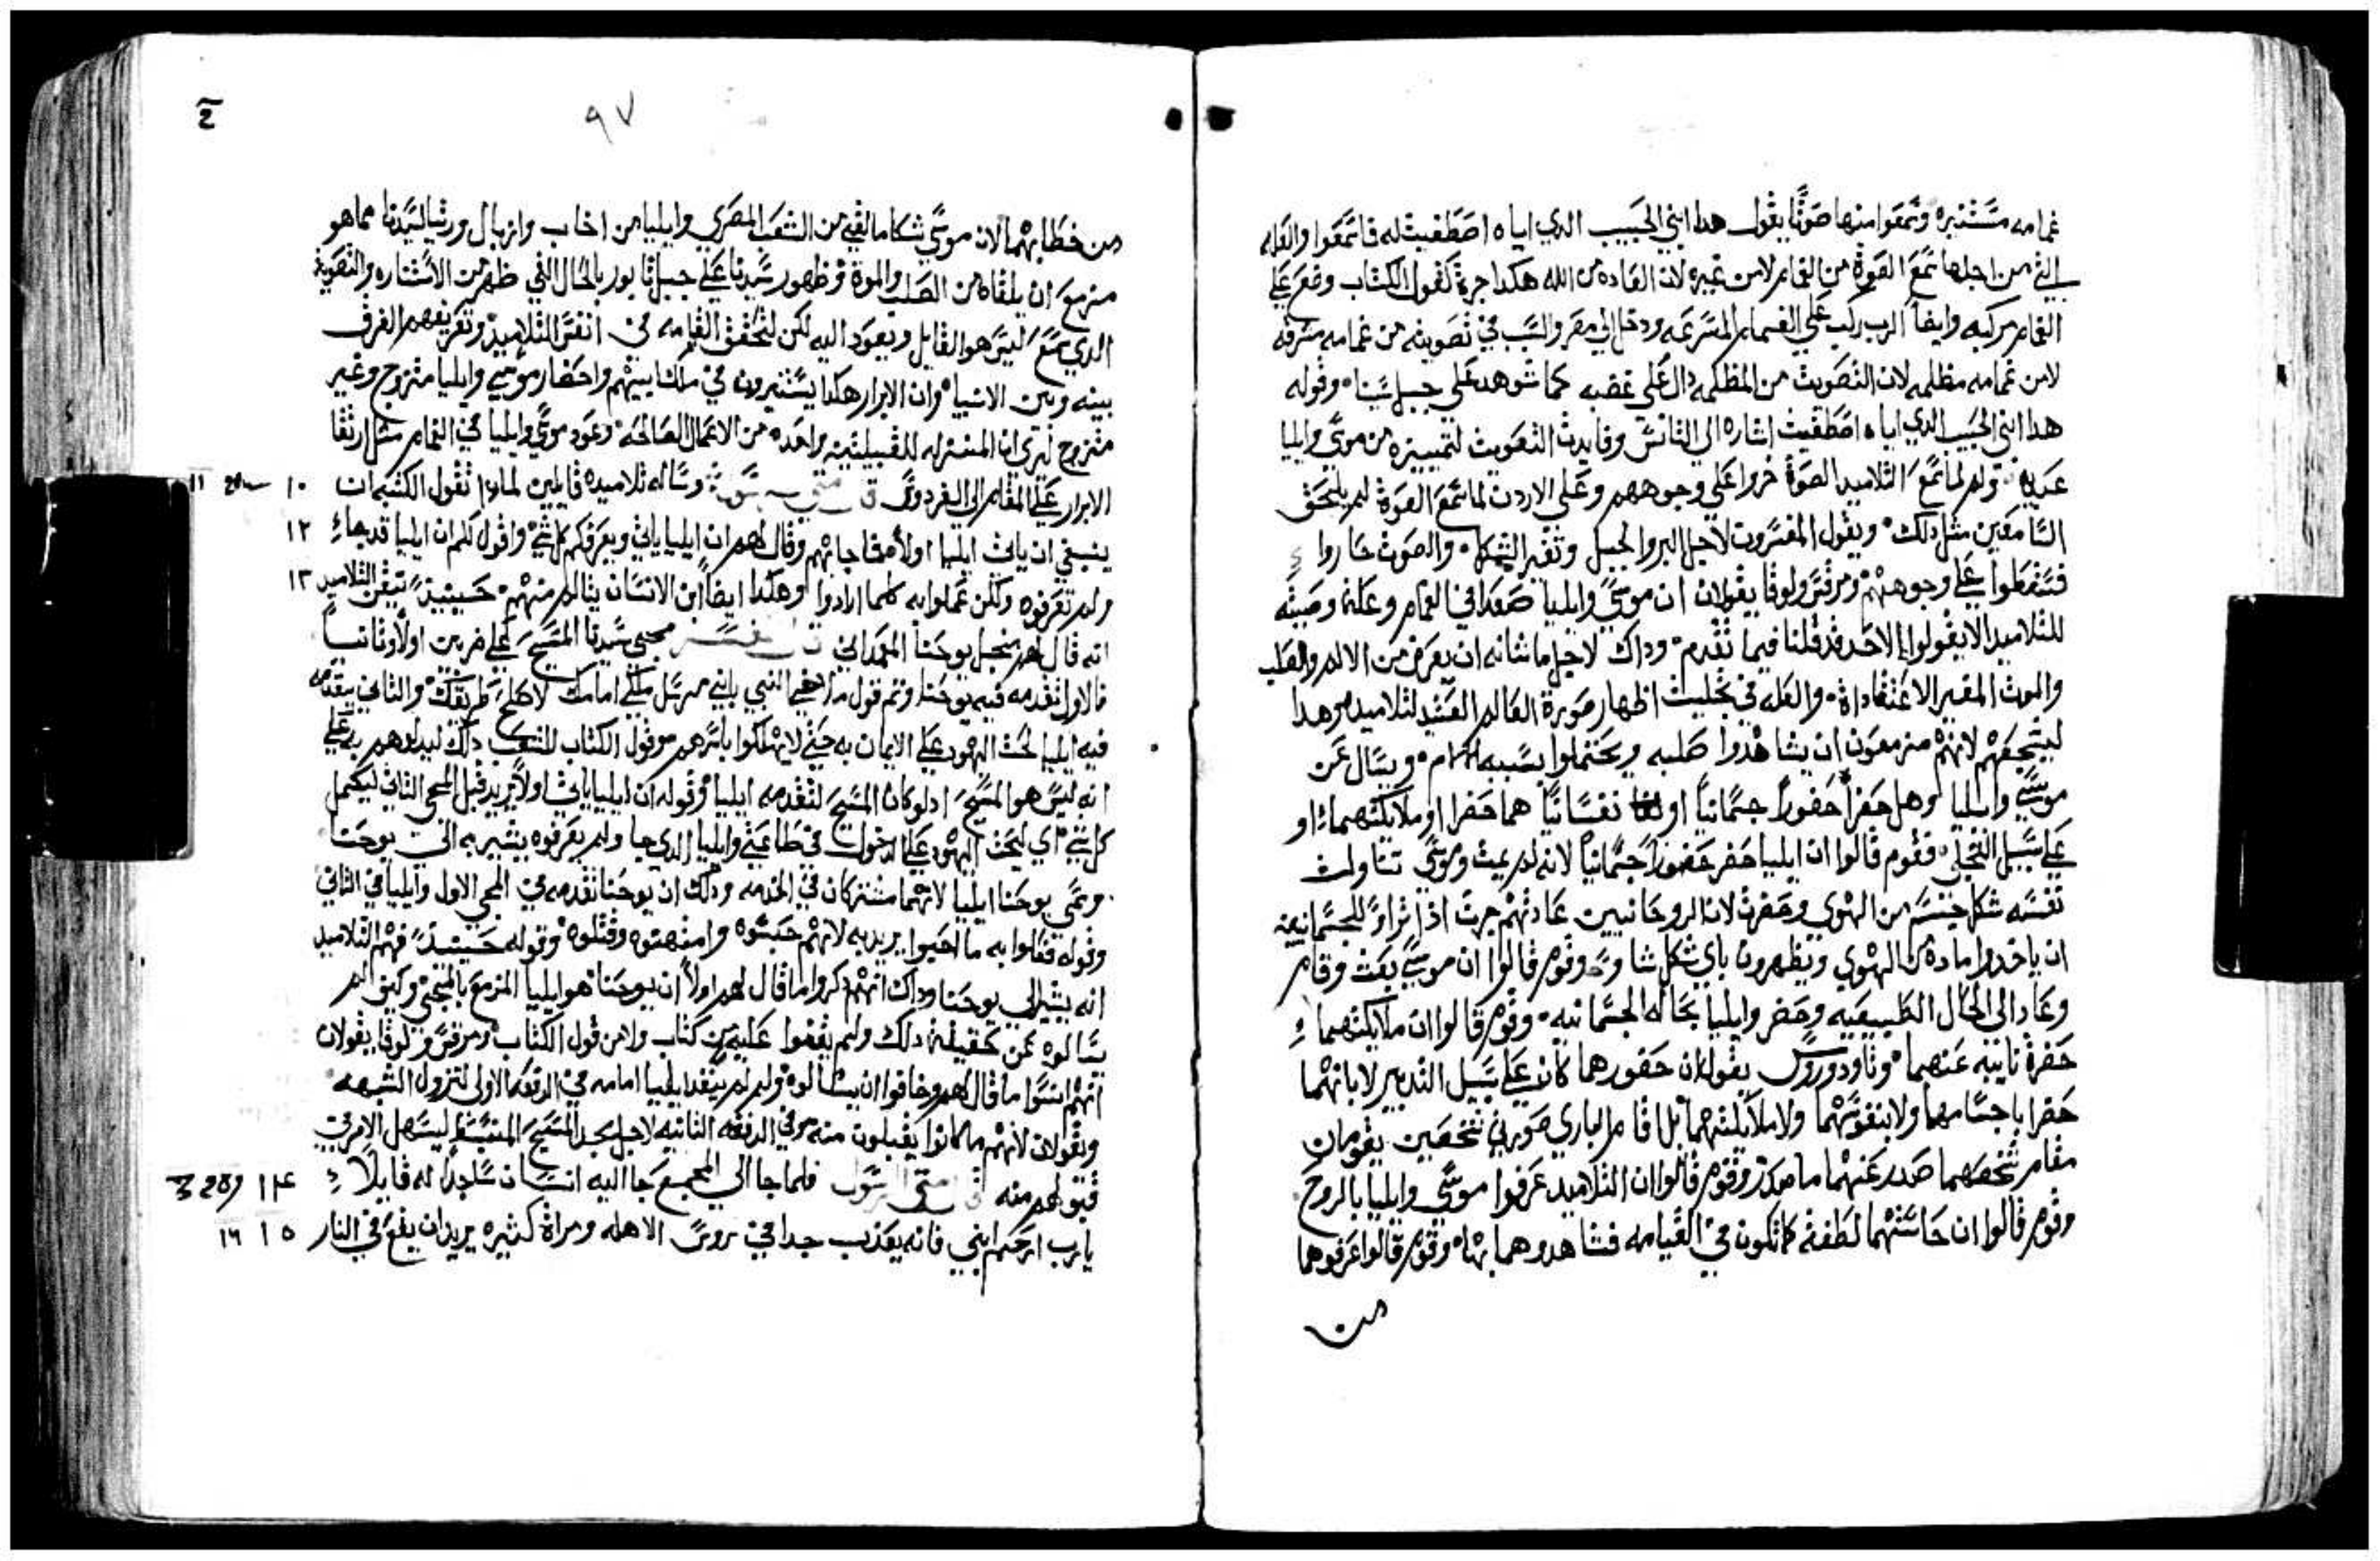 غمامه مستنيره وسمعوا منها صوتًا يقول هدا ابني الحبيب الدي اياه اصطفيت له فاسمعوا والعله
التي من اجلها سمع الصوة من الغمام لا من غيره لان العاده من الله هكدا جرة كقول الكتاب وضع علي
الغمام مركبه وايضاً الرب ركب علي الغمام المسرعه ودخل الي مصر والسبب في تصويته من غمامه مشرقه
لا من غمامه مظلمه لان التصويت من المظلمه دال علي غضبه كما شوهد علي جبل سينا وقوله
هدا ابني الحبيب الدي اياه اصطفيت اشاره الي التانس وفايدت التصويت لتمييزه من موسي وايليا
عبديه ولم لما سمع التلاميد الصوة خروا علي وجوههم وعلي الاردن لما سمع الصوة لم يلحق
السامعين مثل دلك ويقول المفسرون لاجل البر والجبل وتغير الشكل والصوت حاروا
فسقطوا علي وجوههم ومرقس ولوقا يقولان ان موسي وايليا صعدا في الغمام وعلة وصيته
للتلاميد الا يقولوا لاحد قد قلنا فيما تقدم وداك لاجل ما شانه ان يعرض من الالام والصلب
والموت المغير الاعتقاداة والعله في تجليه اظهار صورة العالم العتيد لتلاميده وهدا
ليشجعهم لانهم مزمعون ان يشاهدوا صلبه ويحتملوا بسببه الالام ويسال عن
موسي وايليا وهل حضرا حضوراً جسمانياً او نفسانياً هما حضرا او ملايكتهما او
علي سبيل التجلي فقوم قالوا ان ايليا حضر حضوراً جسمانياً لانه لم يمت وموسي تناولت
نفسه شكل جسم من الهوي وحضرت لان الروحانيين عادتهم جرت ادا تراوا للجسمانيين
ان ياخدوا مادة من الهوي ويظهرون باي شكل شاوا وقوم قالوا ان موسي بعث وقام
وعاد الي الحال الطبيعيه وحضر وايليا بحاله الجسمانيه وقوم قالوا ان ملايكتهما
حضرة نايبه عنهما وتاودوروس يقول ان حضورهما كان علي سبيل التدبير لا بانهما
حضرا باجسامهما ولا بنفوسهما ولا ملايكتهما بل اقام الباري صورتي شخصين يقومان
مقام شخصهما صدر عنهما ما صدر وقوم قالوا ان التلاميد عرفوا موسي وايليا بالروح
وقوم قالوا ان حاستهما لطفة كما تكون في القيامه فشاهدوهما بها وقوم قالوا عرفوهما
من
٩٧
من خطابهما لان موسي شكا ما لقي من الشعب المصري وايليا من اخاب وازبال ورثيا لسيدنا مما هو
مزمع ان يلقاه من الصلب والموة وظهور سيدنا علي جبل تابور بالحال التي ظهر من الاستناره والتصويت
الدي سمع ليس هو القايل ويعود اليه لكن لتحقق القيامه في انفس التلاميد وتعريفهم الفرق
بينه وبين الانبيا وان الابرار هكدا يستنيرون في ملك ابيهم واحضار موسي وايليا متزوج وغير
متزوج ليري ان المنزله للقبيلتين واحده من الاعمال الصالحه وعود موسي وايليا في الغمام مثل ارتقا
الابرار علي الغمام الي الفردوس وساله تلاميده قايلين لمادا تقول الكتبه ان ١٠
ينبغي ان ياتي ايليا اولاً فاجابهم وقال لهم ان ايليا ياتي ويعرفكم كل شي واقول لكم ان ايليا قد جا ١٢
ولم تعرفوه ولكن عملوا به كلما ارادوا وهكدا ايضاً ابن الانسان يتالم منهم حينيدً تيقن التلاميد ١٣
انه قال لهم من اجل يوحنا المعمداني مجي سيدنا المسيح علي ضربين اولاً وثانياً
فالاول تقدمه فيه يوحنا وتم قول ملاخي النبي باني مرسل ملاكي امامك لاصلح طريقك والثاني يتقدمه
فيه ايليا لحث اليهود علي الايمان به حتي لا يهلكوا باسرهم وقول الكتاب للشعب داك ليدلهم به علي
انه ليس هو المسيح ادلو كان المسيح لتقدمه ايليا وقوله ان ايليا ياتي اولاً يريد قبل المجي الثاني ليكمل
كل شي اي ليحث اليهود علي الدخول في طاعتي وايليا الدي جا ولم يعرفوه يشير به الي يوحنا
وسمي يوحنا ايليا لانهما مشتركان في الخدمه ودلك ان يوحنا تقدمه في المجي الاول وايليا في الثاني
وقوله فعلوا به ما احبوا يريد به لانهم حبسوه وامتهنوه وقتلوه وقوله حينيدً فهم التلاميد
انه يشير الي يوحنا وداك انهم دكروا ما قال لهم اولاً ان يوحنا هو ايليا المزمع بالمجي وكيف لم
يسالوه عن حقيقة دلك ولم يقفوا عليه من كتاب ولا من قول الكتاب ومرقس ولوقا يقولان
انهم انسوا ما قال لهم وخافوا ان يسالوه ولم لم ينفد ايليا امامه في الدفعه الاولي لتزول الشبهه
ويقولان لانهم ما كانوا يقبلون منه وفي الدفعه الثانيه لاجل مجد المسيح المنبسط ليسهل الامر في
قبولهم منه متي الرسول فلما جا الي المجمع جا اليه انسان ساجداً له قايلاً ١٤
يارب ارحم ابني فانه يعدب جدا في روس الاهله ومراة كثيره يريد ان يقع في النار ١٥ ١٦